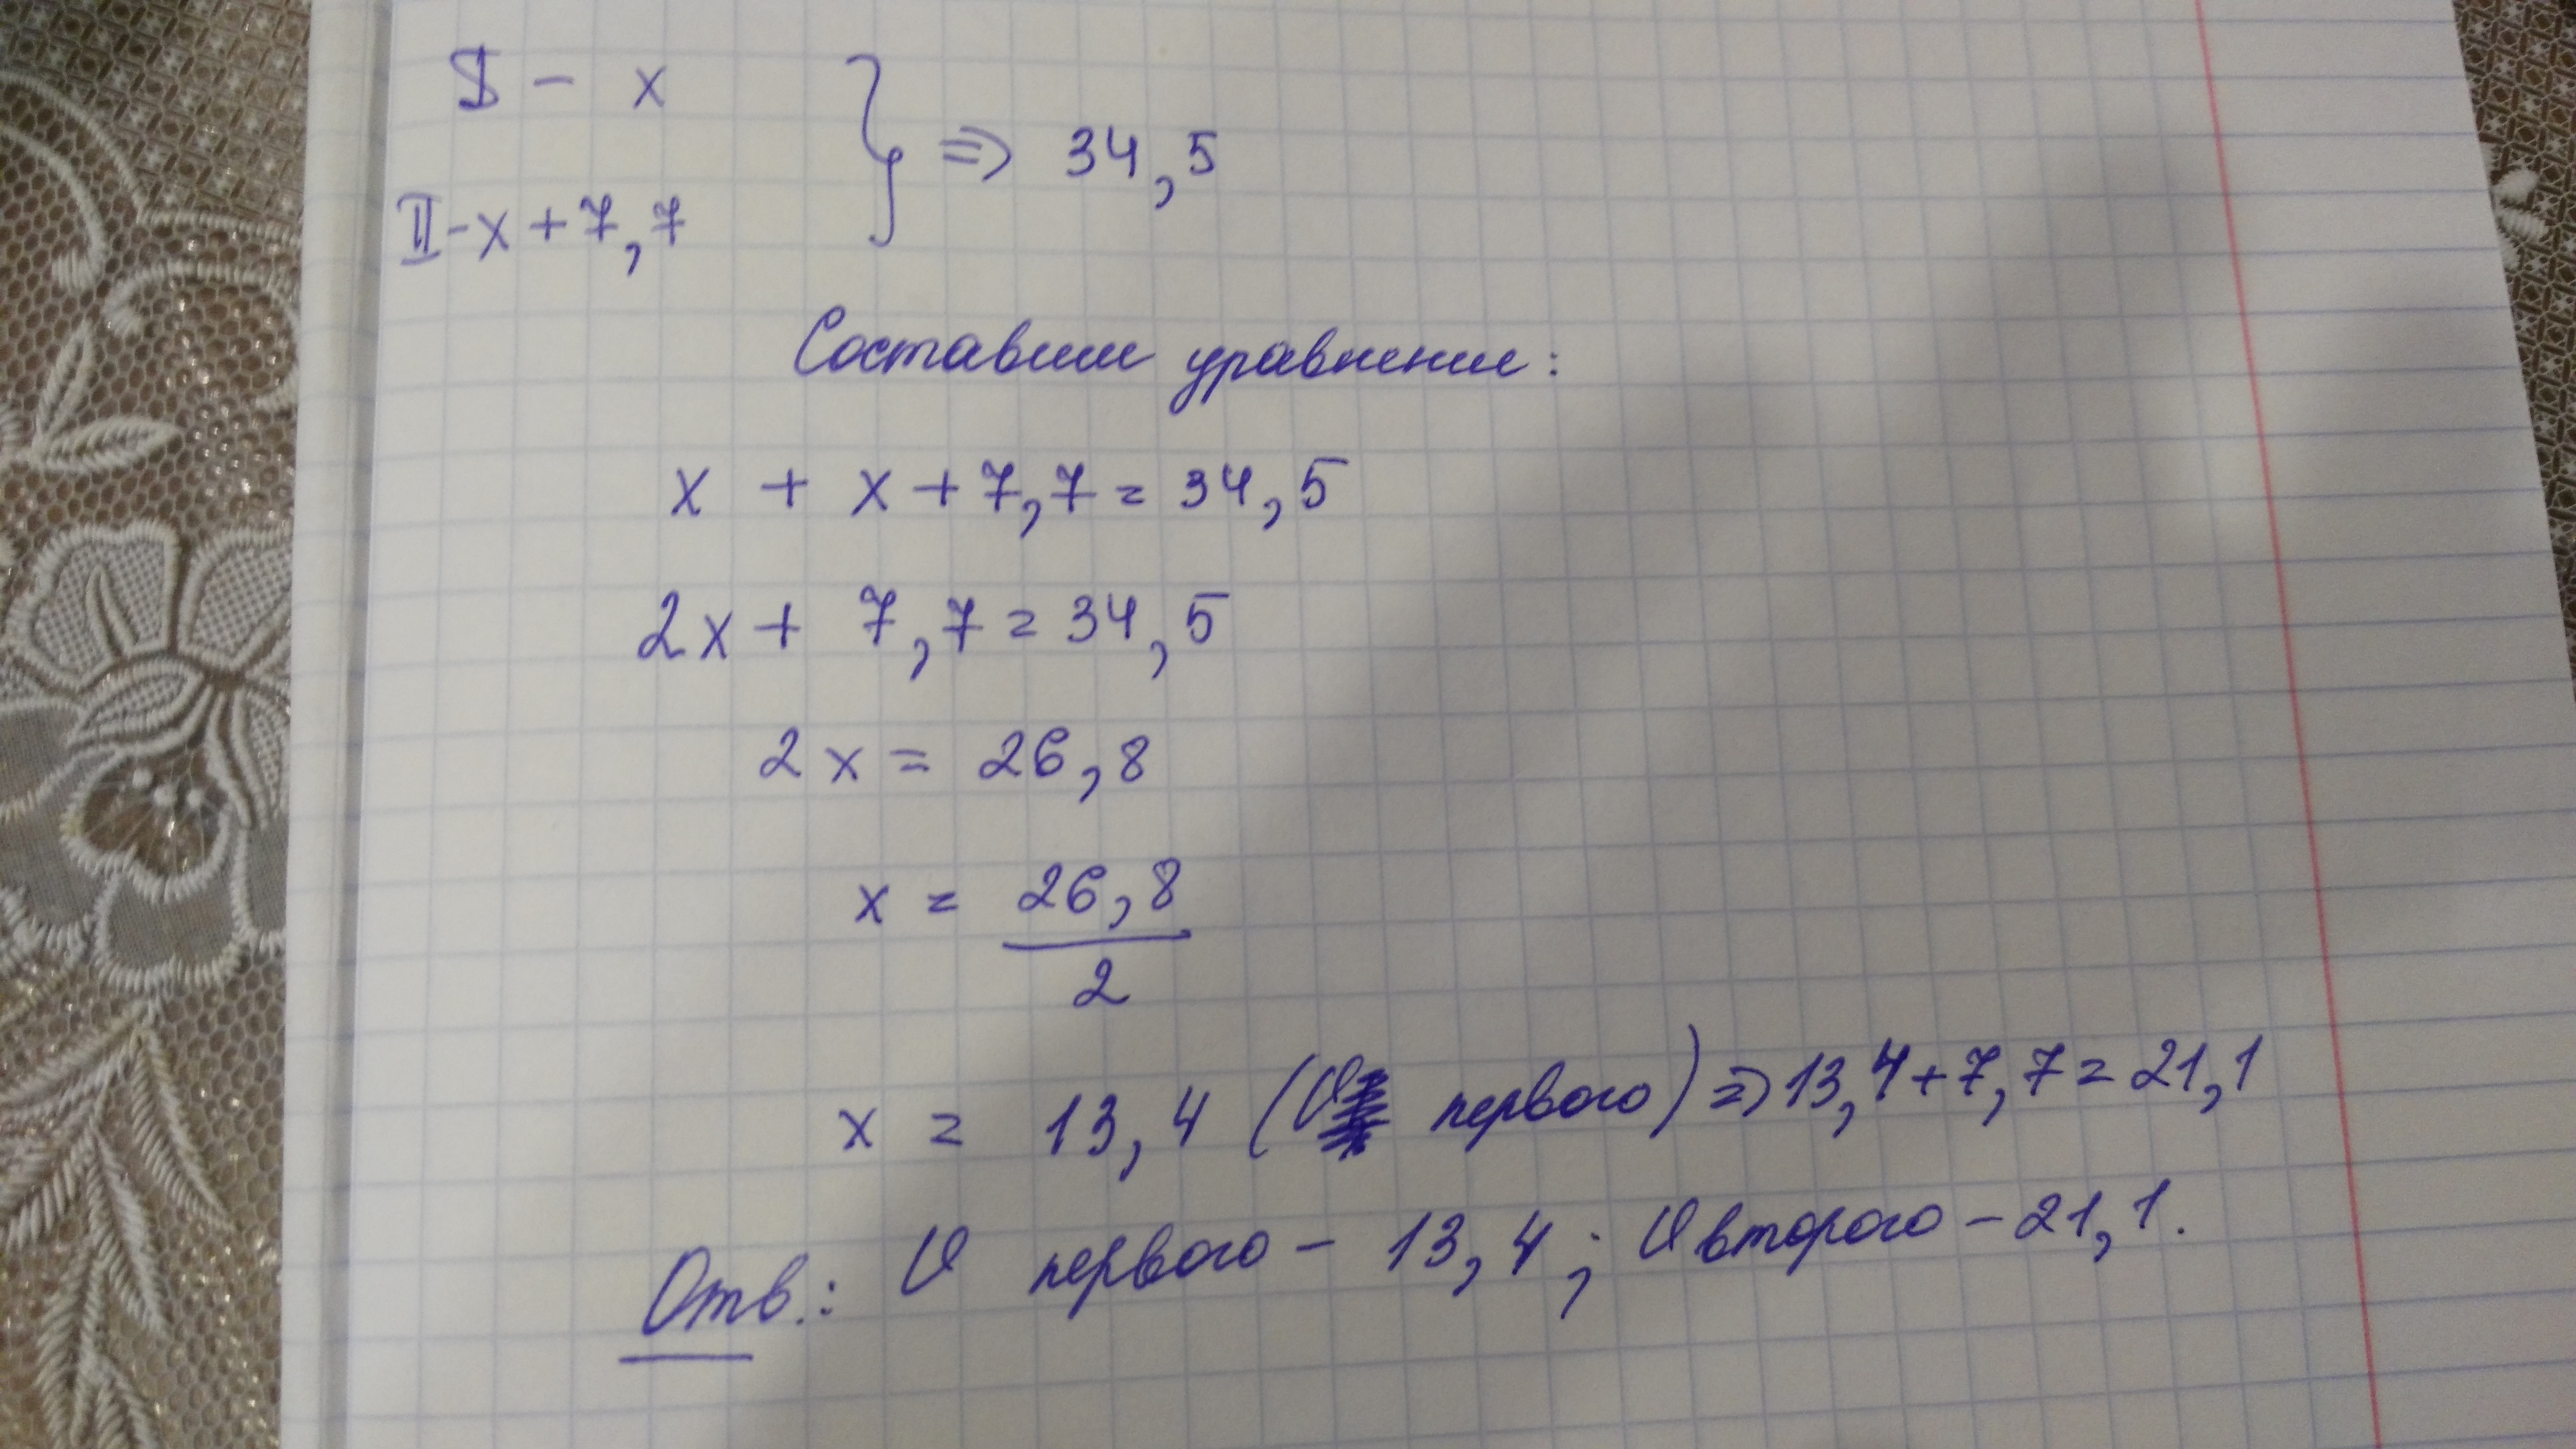 I - x
} => 34,5
II - x + 7,7
Составим уравнение:
x + x + 7,7 = 34,5
2x + 7,7 = 34,5
2x = 26,8
x = 26,8
2
x = 13,4 (У первого) => 13,4 + 7,7 = 21,1
Отв.: У первого - 13,4; У второго - 21,1.